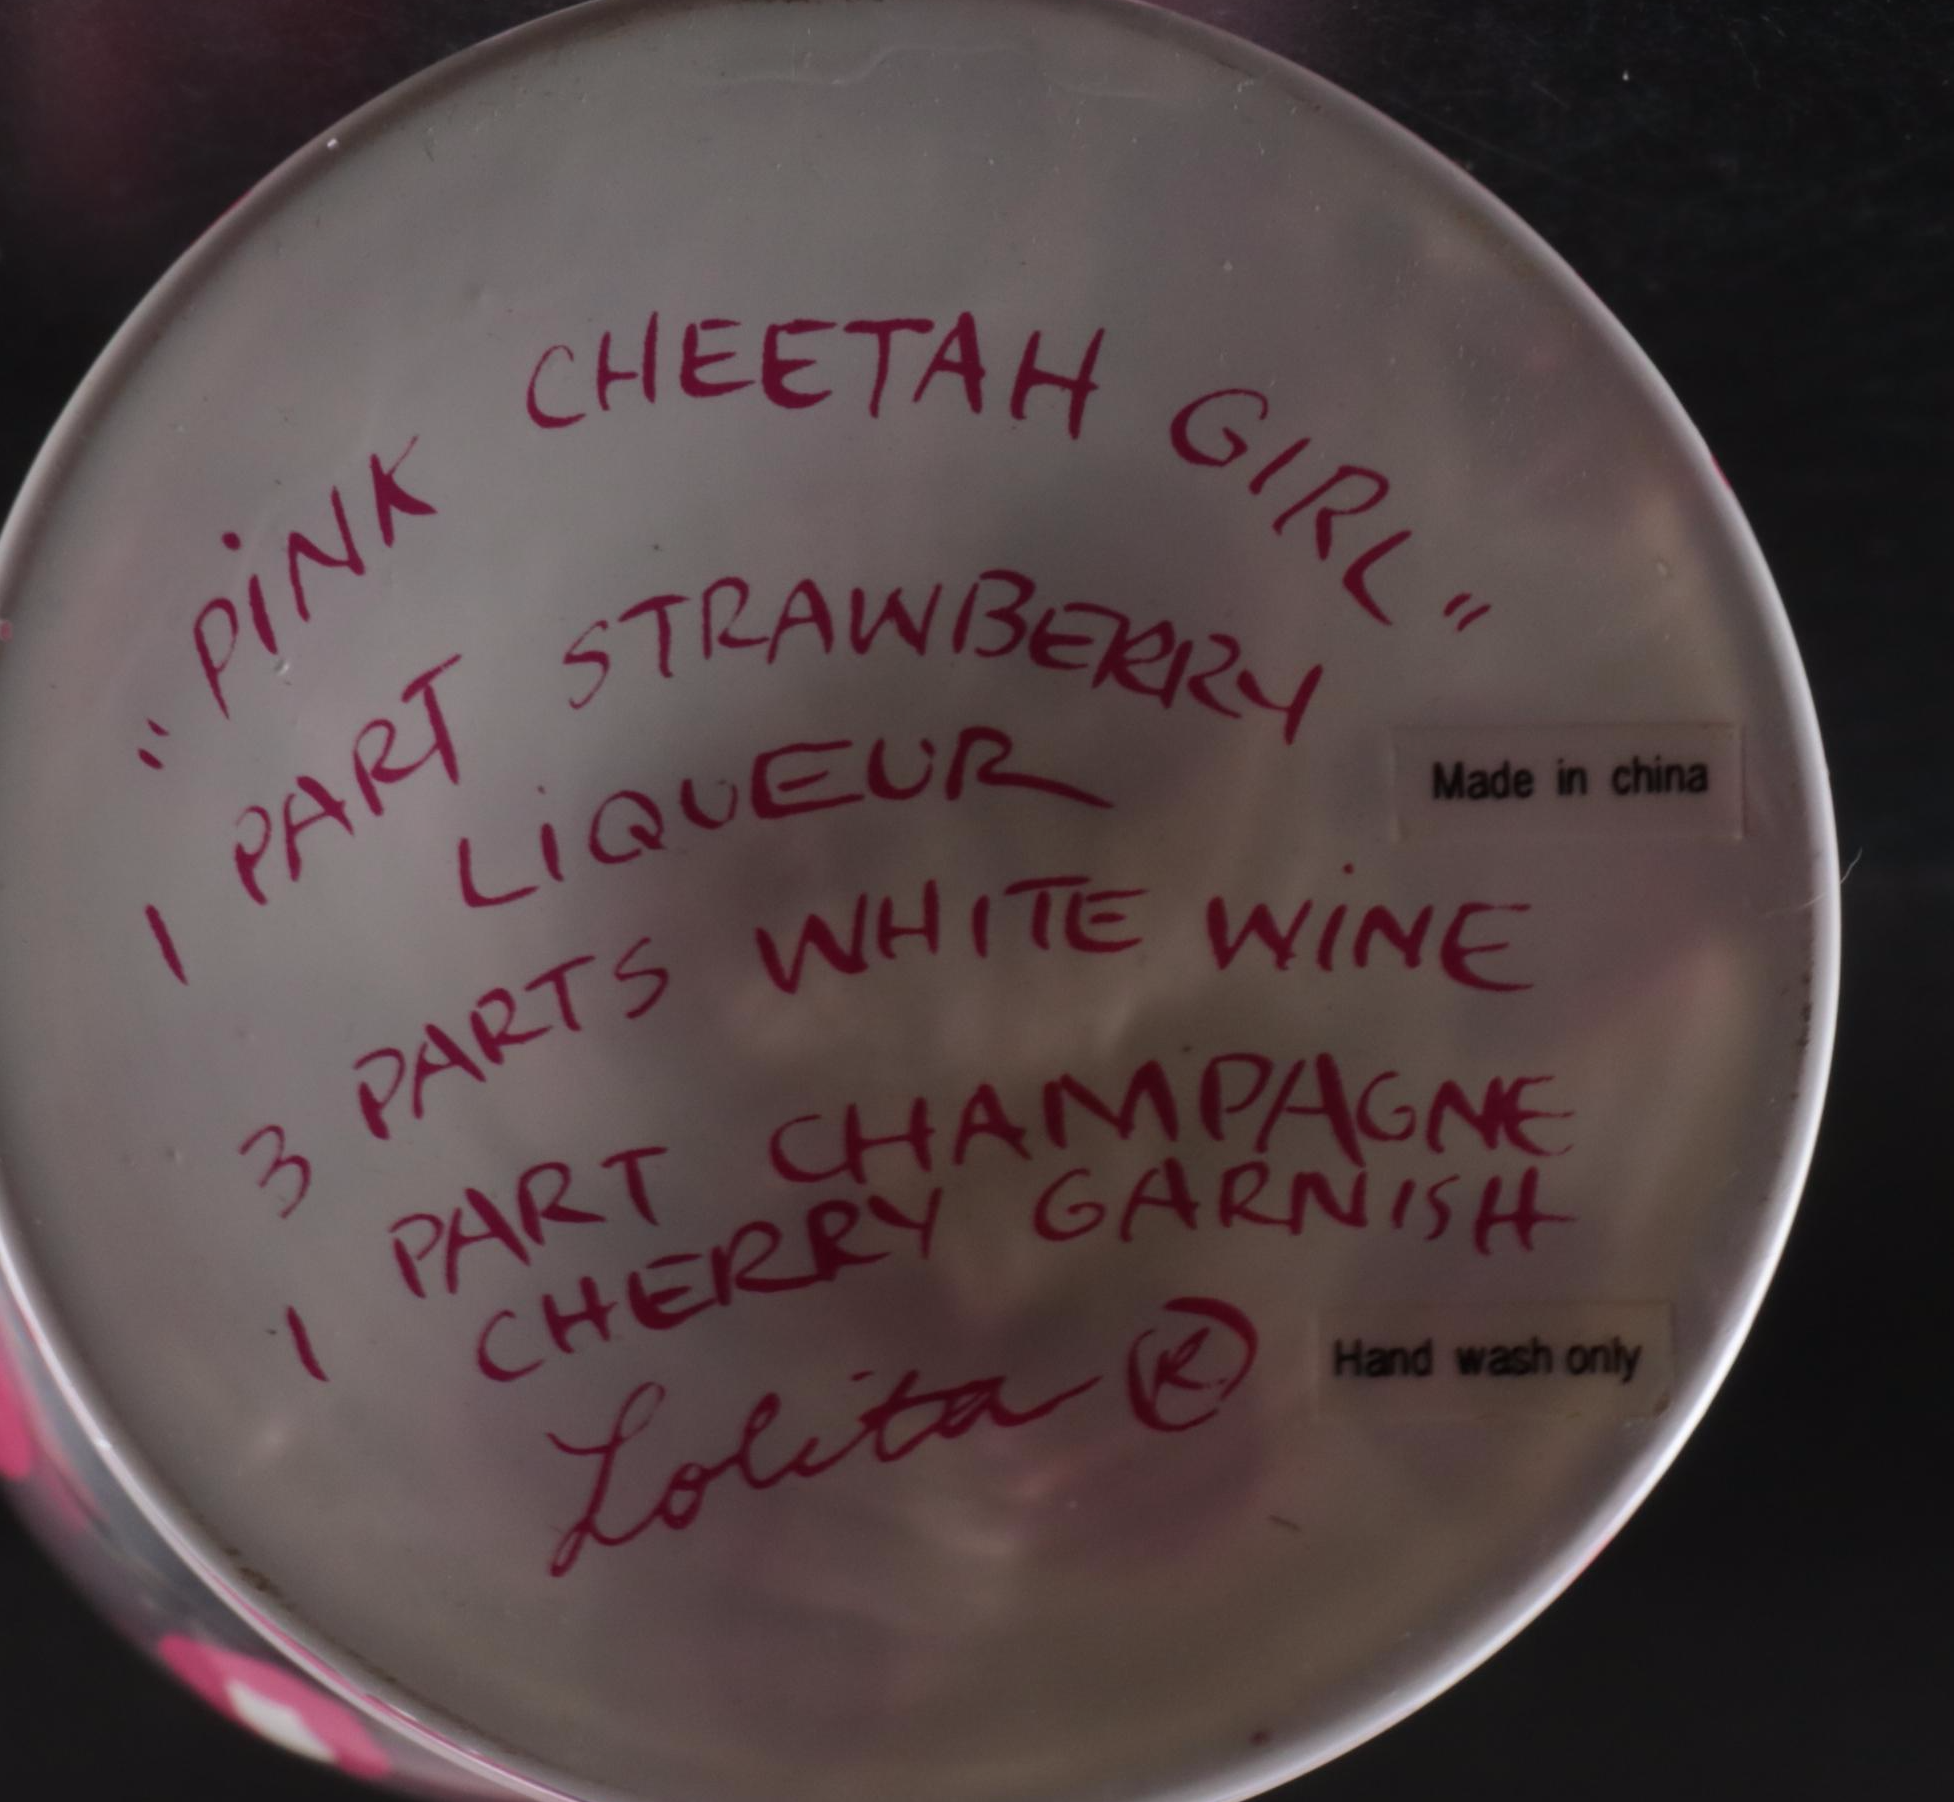 "PINK CHEETAH GIRL"
1 PART STRAWBERRY
LIQUEUR
Made in china
3 PARTS WHITE WINE
1 PART CHAMPAGNE
CHERRY GARNISH
Lolita ®
Hand wash only